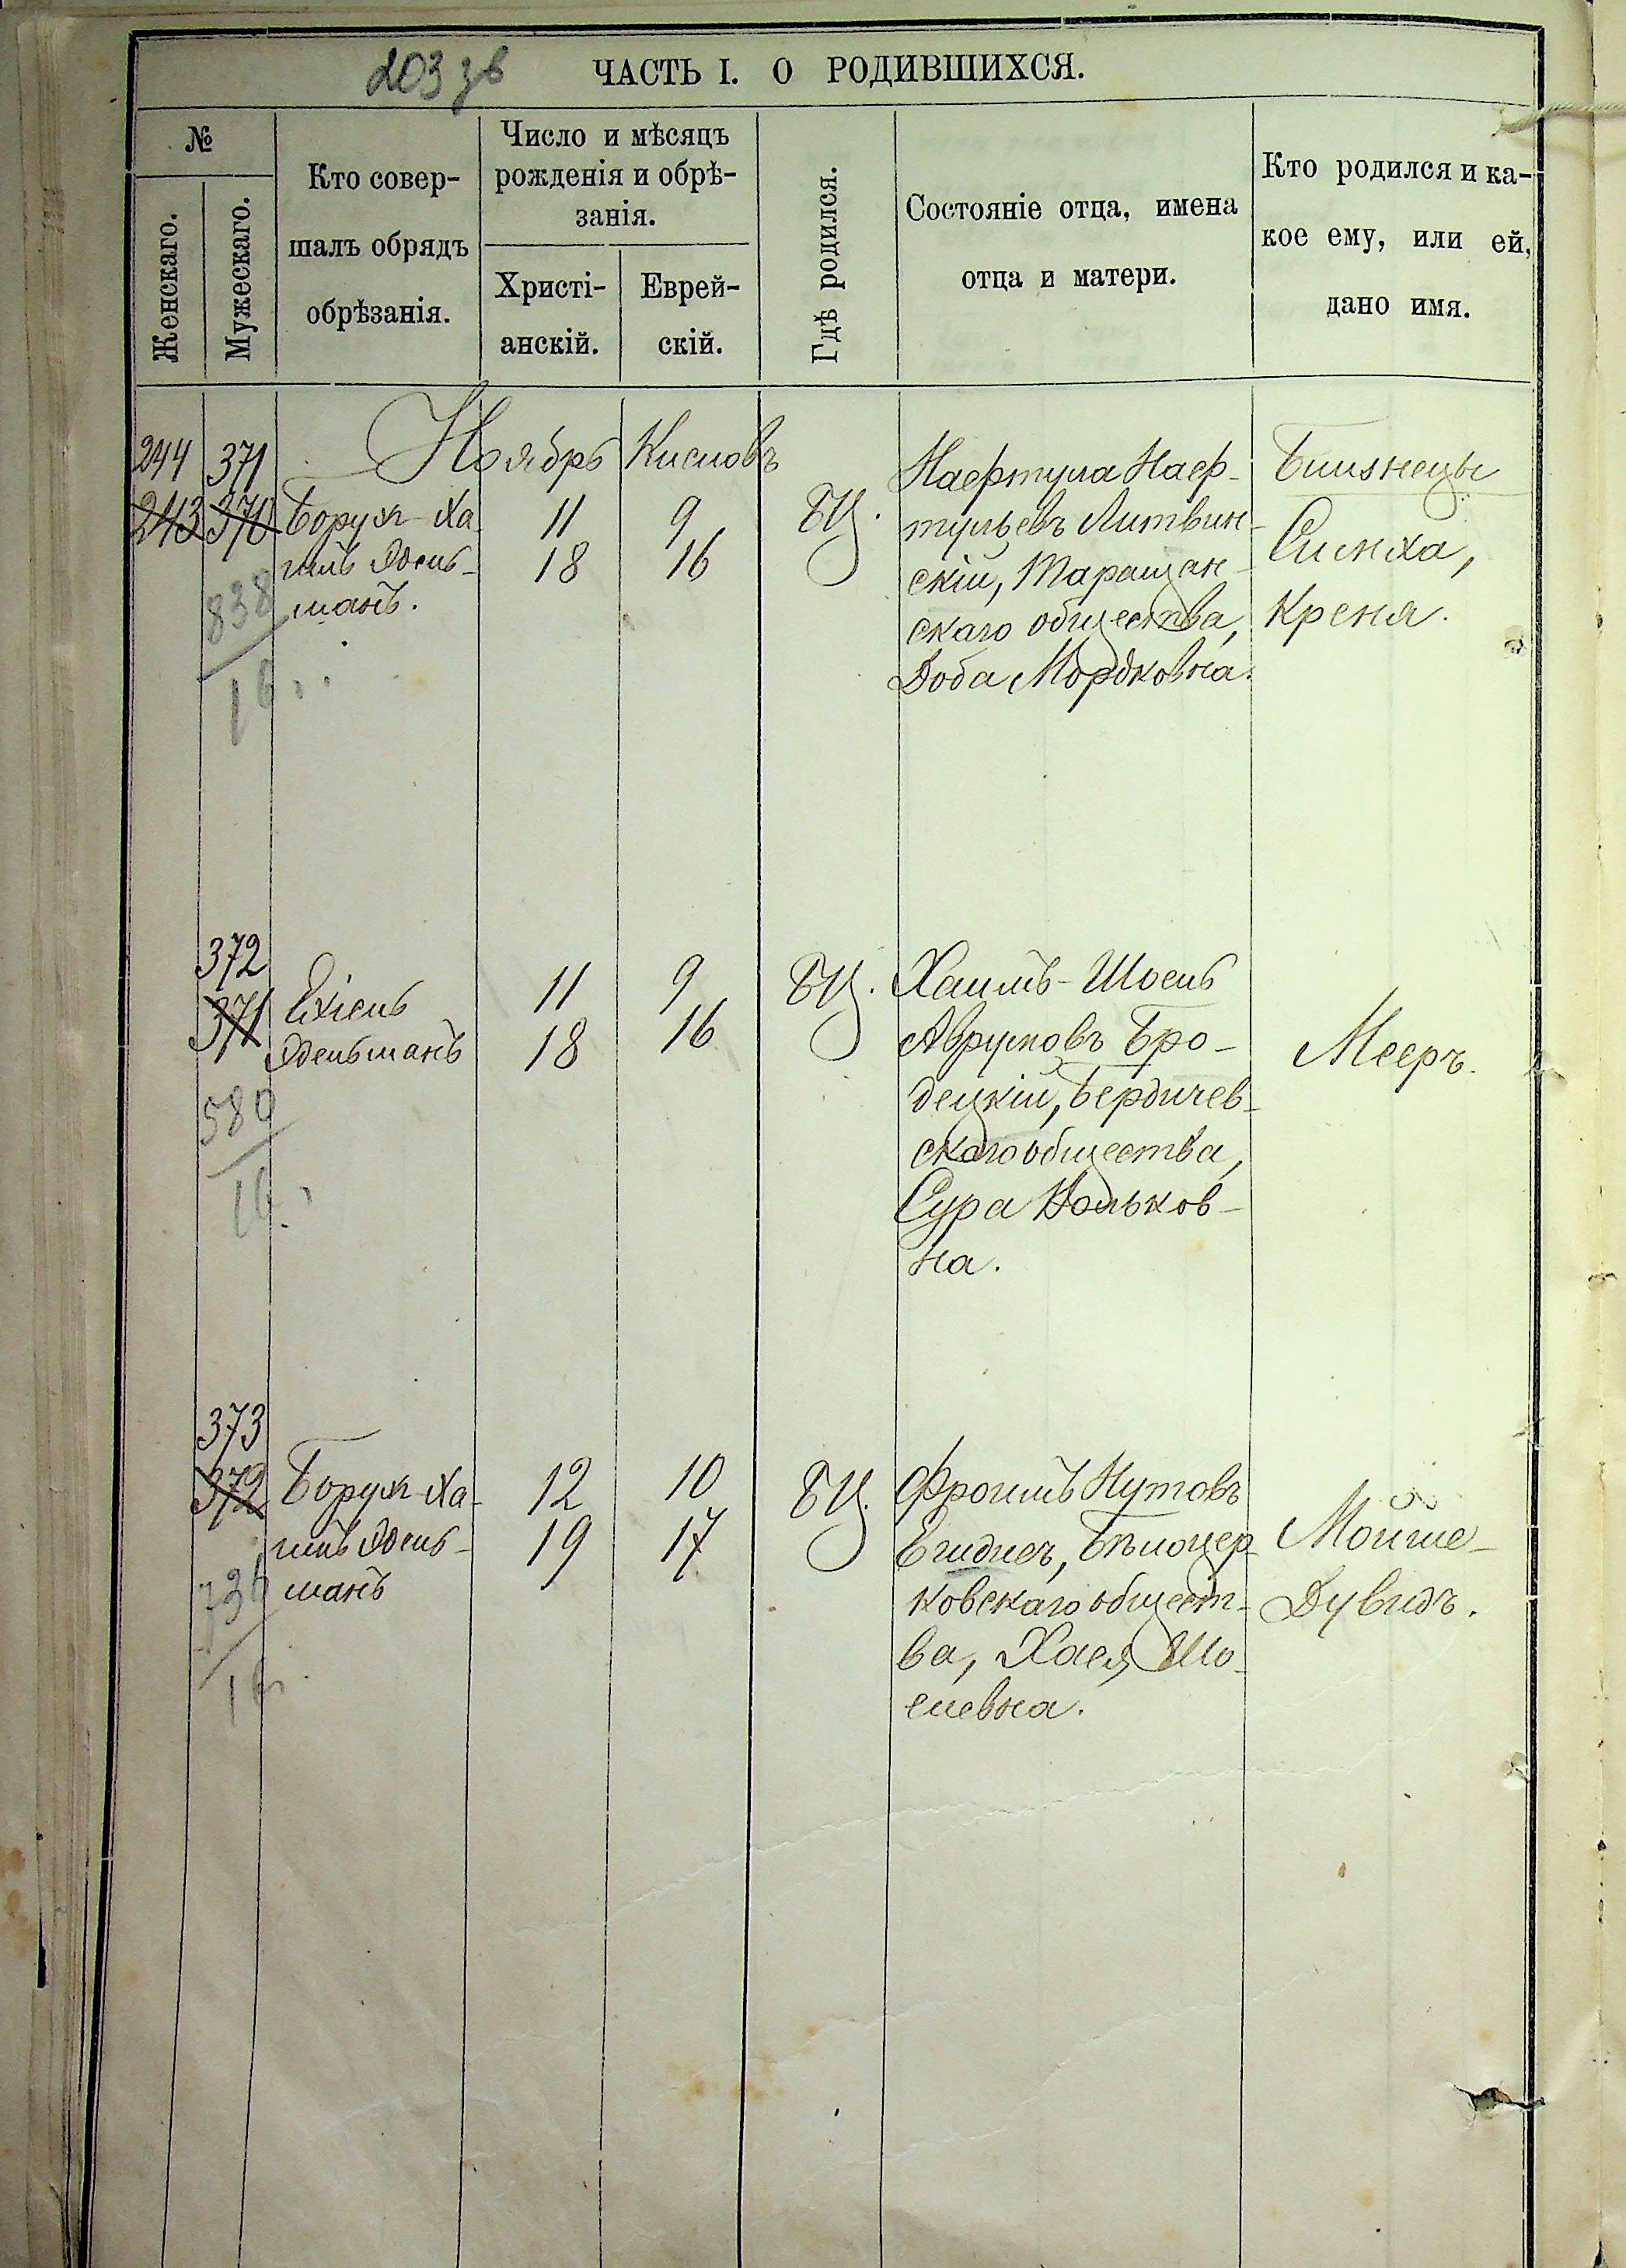 203 зв
ЧАСТЬ I. О РОДИВШИХСЯ.
№
Женскаго.
Мужескаго.
Кто совер-
шалъ обрядъ
обрѣзанія.
Число и мѣсяцъ
рожденія и обрѣ-
занія.
Христі-
анскій.
Еврей-
скій.
Гдѣ родился.
Состояніе отца, имена
отца и матери.
Кто родился и ка-
кое ему, или ей,
дано имя.
Ноябрь Кислевъ
244 371
243 370
838
16
Борух-Ха
имъ Эдель-
манъ.
11 9
18 16
БЦ.
Нафтула Наф-
тульевъ Литвин-
скій, Таращан-
скаго общества,
Доба Мордковна.
Близнецы
Симха,
Креня.
372
371
580
16
Ехіель
Эдельманъ
11 9
18 16
БЦ.
Хаимъ-Шоель
Аврумовъ Бро-
децкій, Бердичев-
скаго общества,
Сура Вольков-
на.
Мееръ.
373
372
736
16
Борух-Ха-
имъ Эдель-
манъ
12 10
19 17
БЦ.
Фроимъ Нутовъ
Бѣлоцер-
ковскаго общест-
ва, Хася Шо-
елевна.
Мойше-
Дувидъ.